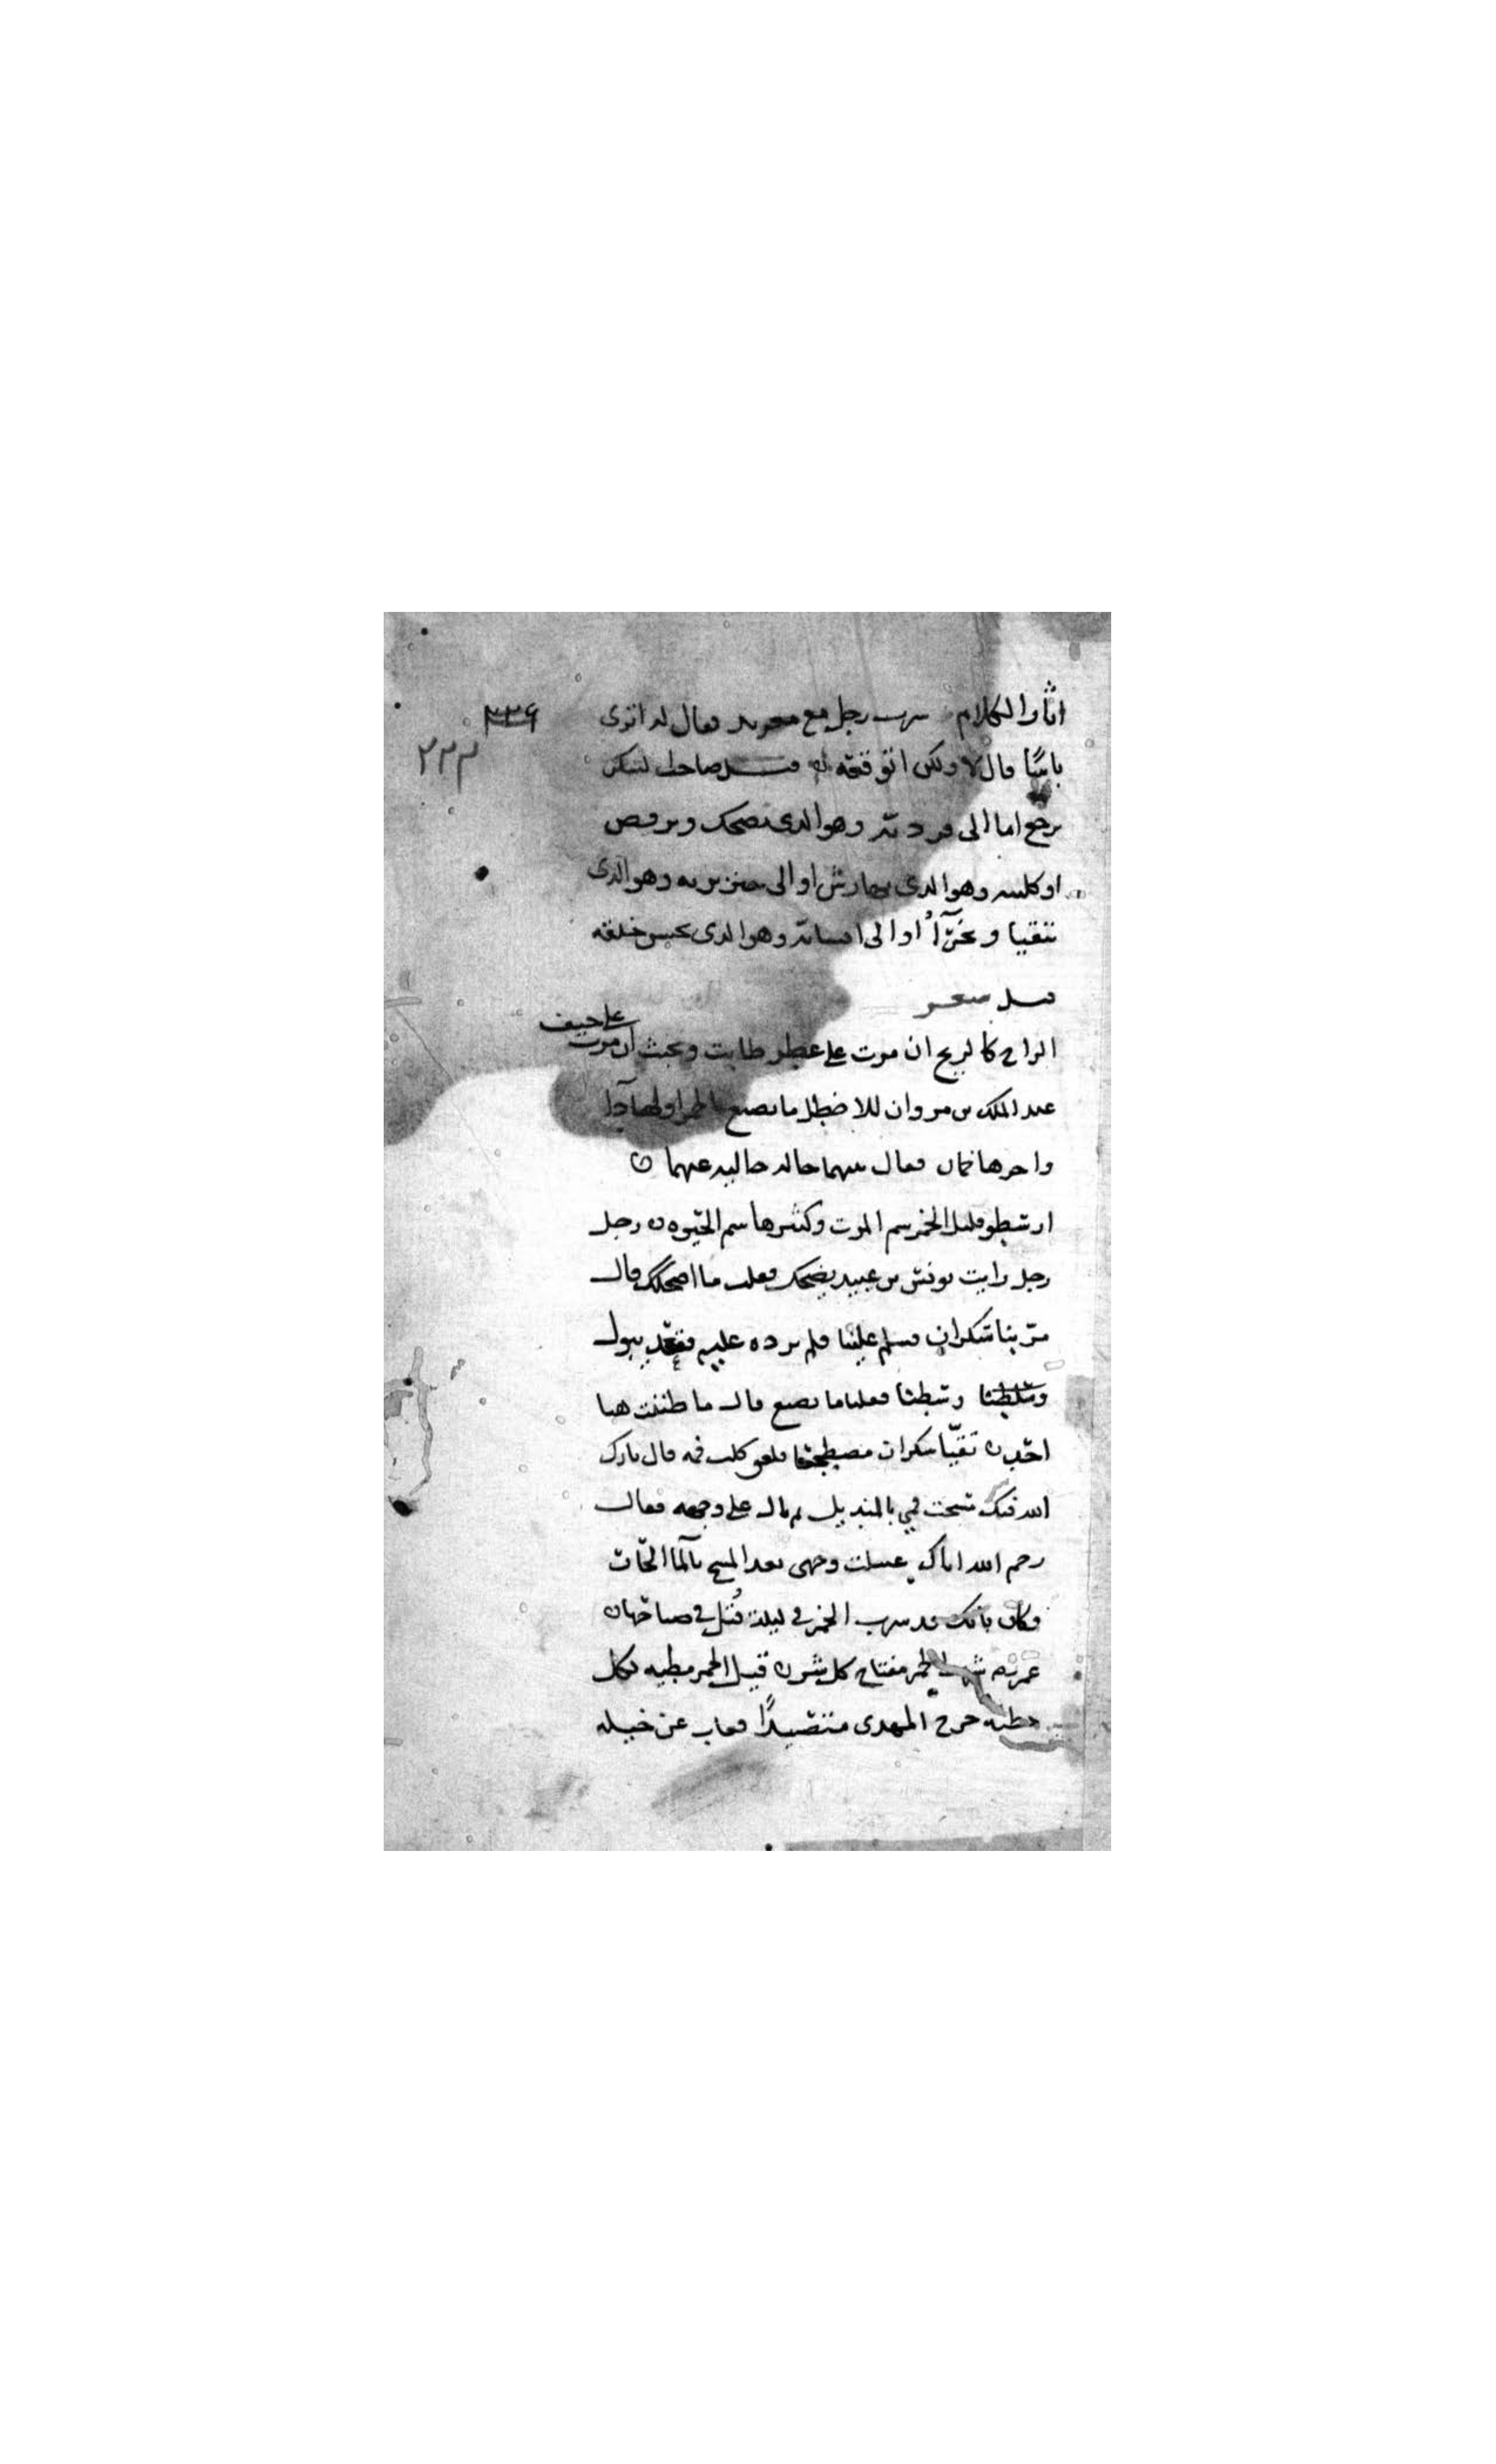 اثاروا الكلام شرب رجل مع فقال له اترى
٢٣٦
باسًا قال لا ولكن اتوقعه قيل صاحب السكر
٢٣٣
يرجع اما الى قردية وهو الذي يضحك ويرقص
او كلبيه وهو الذي يهارش او الى خنزيريه وهو الذي
يتقيا و او الى انسانية وهو الذي يحسن خلقه
قيل شعر
الراح كالريح ان موت على عطر طابت وتخبث ان موت
على جيف
عبد الملك بن مروان للاخطل ما تصنع بالخمر اولها
واخرها خمار فقال بينهما حاله
ارسطو قليل الخمر سم الموت وكثيرها سم الحيوه ن رجل
رجل رايت يونس بن عبيد يضحك فقلت ما اضحكك قال
مر بنا سكران فسلم علينا فلم نرده عليه فقعد يبول
وسطنا وسطنا فقلنا ما تصنع قال ما ظننت هنا
احد ن تقيا سكران فلعق كلب فمه قال بارك
الله فيك مسحت فمي بالمنديل ثم بال على وجهه فقال
رحم الله اباك غسلت وجهي بعد المسح بالما الحار
وكان بابك قد شرب الخمر في ليلة قتل في صباحها ن
عمر شرب الخمر مفتاح كل شر ن قيل الخمر مطيه لكل
خطيه خرج المهدى متصيدًا فغاب عن خيله